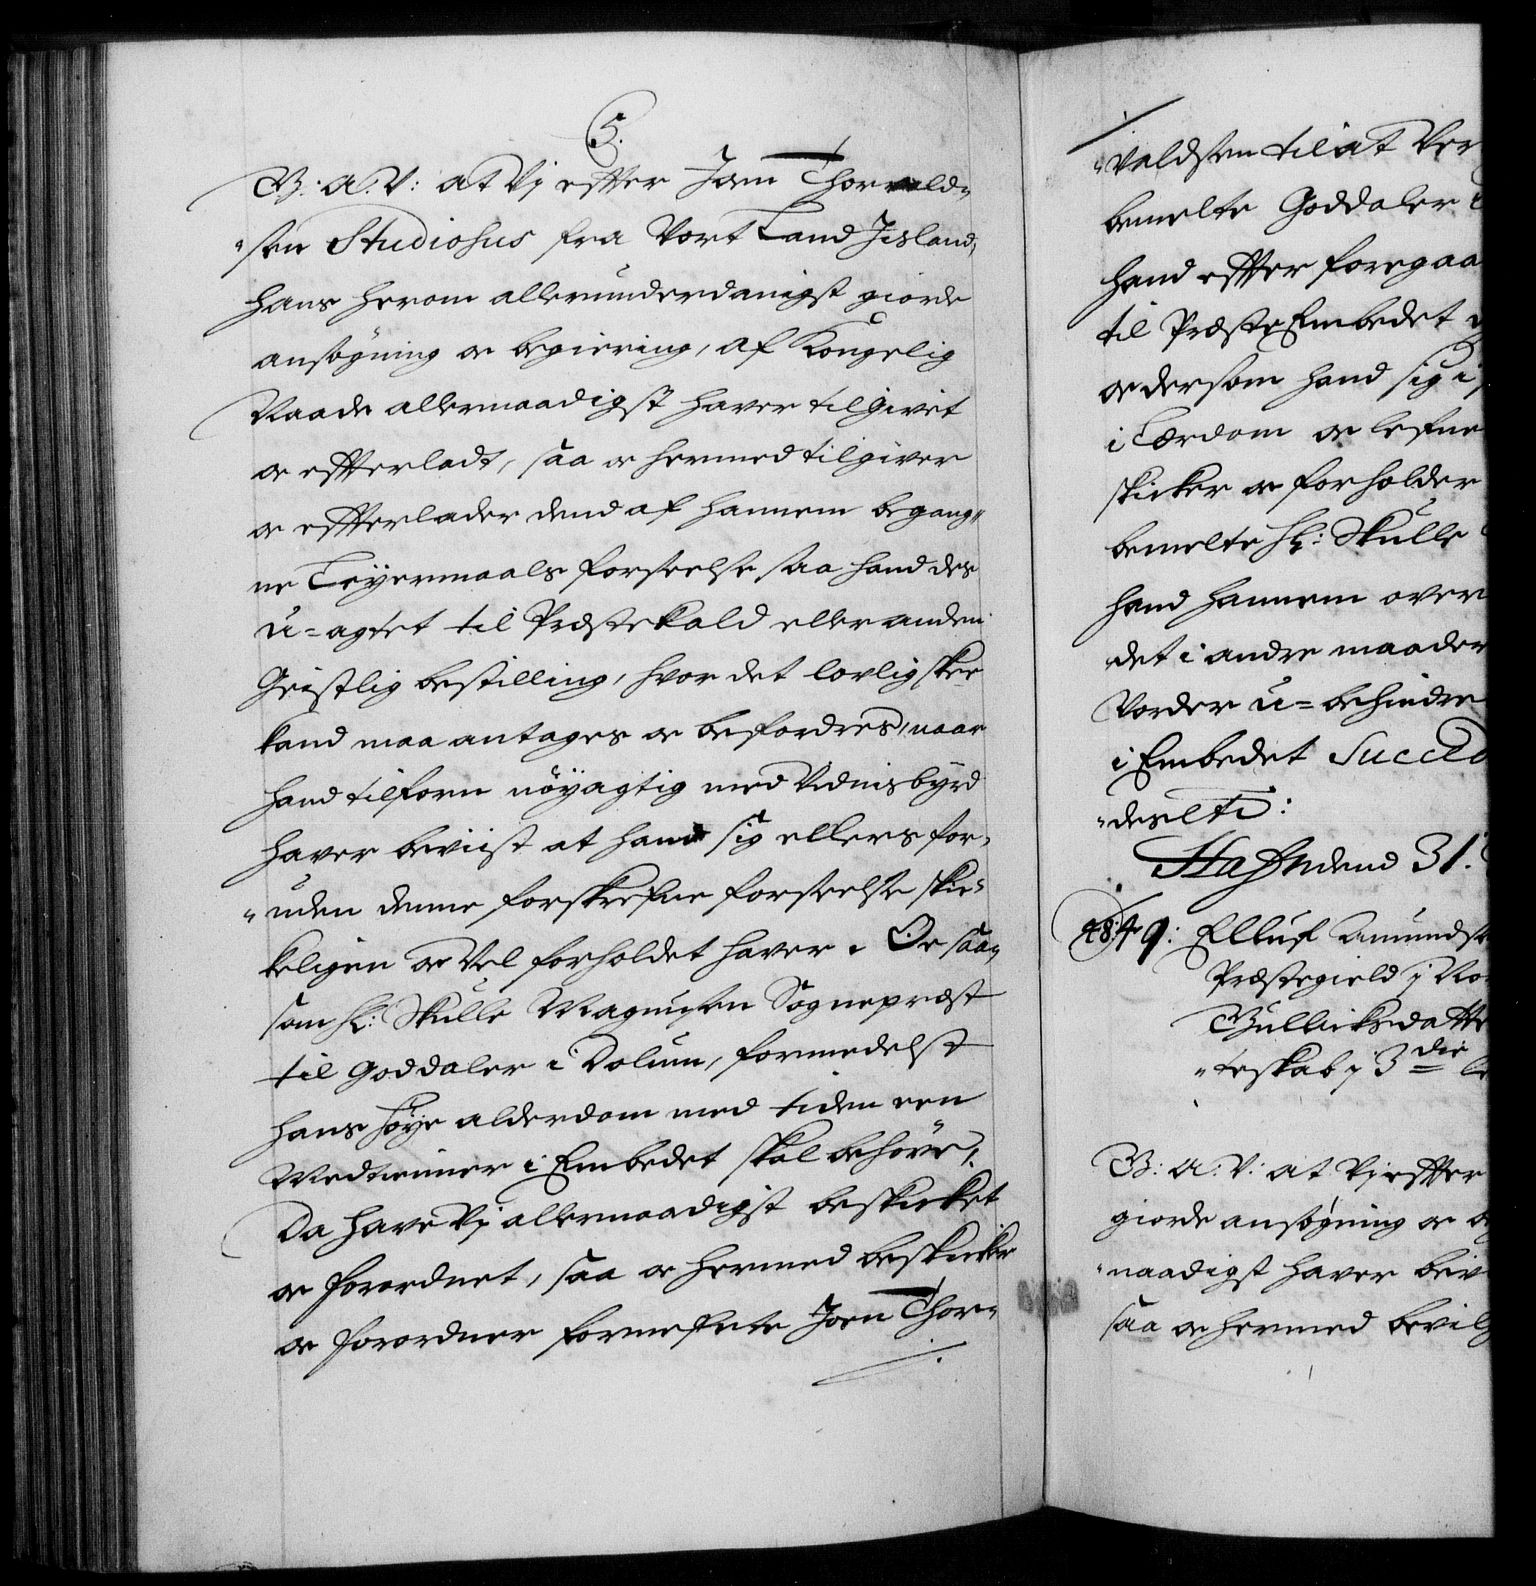 5.
G: A: V: at Vj effter Joen Thorvald-
"sen Studiosus fra Vort Land Jisland,
hans herom allerunderdanigst giorde
ansøgning oc begiering, af Kongelig
Naade allernaadigst haver tilgivet
oc effterladt, saa oc hermed tilgiver
oc effterlader dend af hannem begang-
ne Leÿermaals forseelse, saa hand des
u=agtet til Præstekald eller anden
Geistlig bestilling, hvor det lovlig skee
kand maa antages oc befordres, naar
hand tilforn nöÿagtig med Vidnisbÿrd
haver beviist at hand sig ellers for-
"uden denne forskrefne forseelse skic-
keligen oc Vel forholdet haver. Oc saa-
som Hr: Skulle Magnussen Sognepræst
til Goddaler i Dolum, formedelst
hans høÿe alderdom med tiden een
Medtiener i Embedet skal behöve,
Da have Vj allernaadigst beskicket
oc forordnet, saa oc hermed beskicker
oc forordner fornefnte Joen Thor-
"valdsen til at Ver
bemelte Goddaler
hand effter foregaa
til Præste Embedet
oc dersom hand sig i
i Lærdom oc lefne
skicker oc forholder
bemelte Hr: Skulle
hand hannem over
det i andre maader
Vorder u=behindre
i Embedet Succed
"deslti:
Hafn dend 31.
49: Elluf Amundse
Præstegield j No
Gullicksdatter
"teskab j 3die le
G: A: V: at Vj effter
giorde ansøgning oc be
"naadigst haver bev
saa oc hermed bevilg